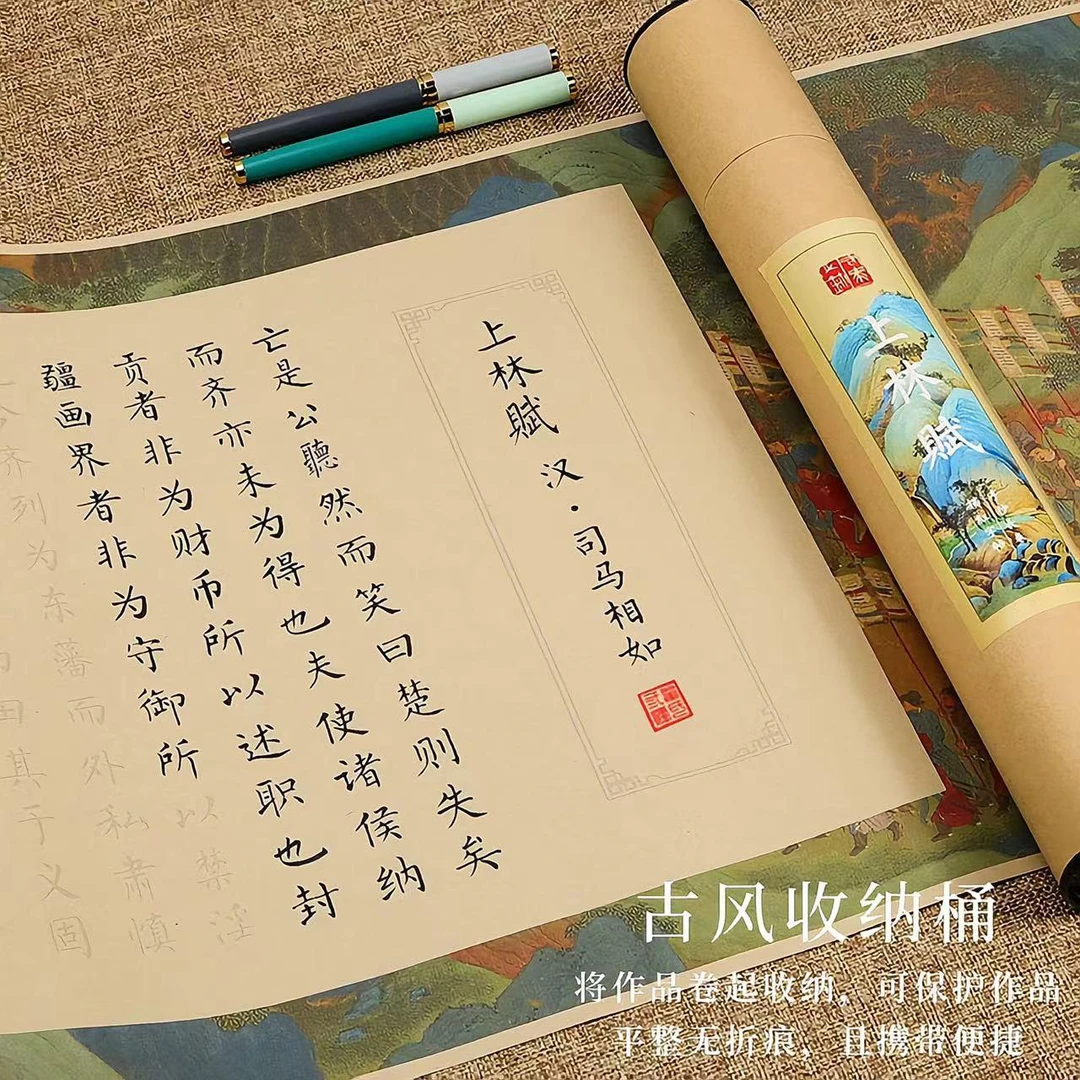 上林賦 汉·司马相如
亡是公聽然而笑曰楚则失矣
而齐亦未为得也夫使诸侯纳
贡者非为财币所以述职也封
疆画界者非为守御所以禁淫
今齐列为东藩而外私肃慎
田其于义固
上林賦
古风收纳桶
将作品卷起收纳，可保护作品
平整无折痕，且携带便捷